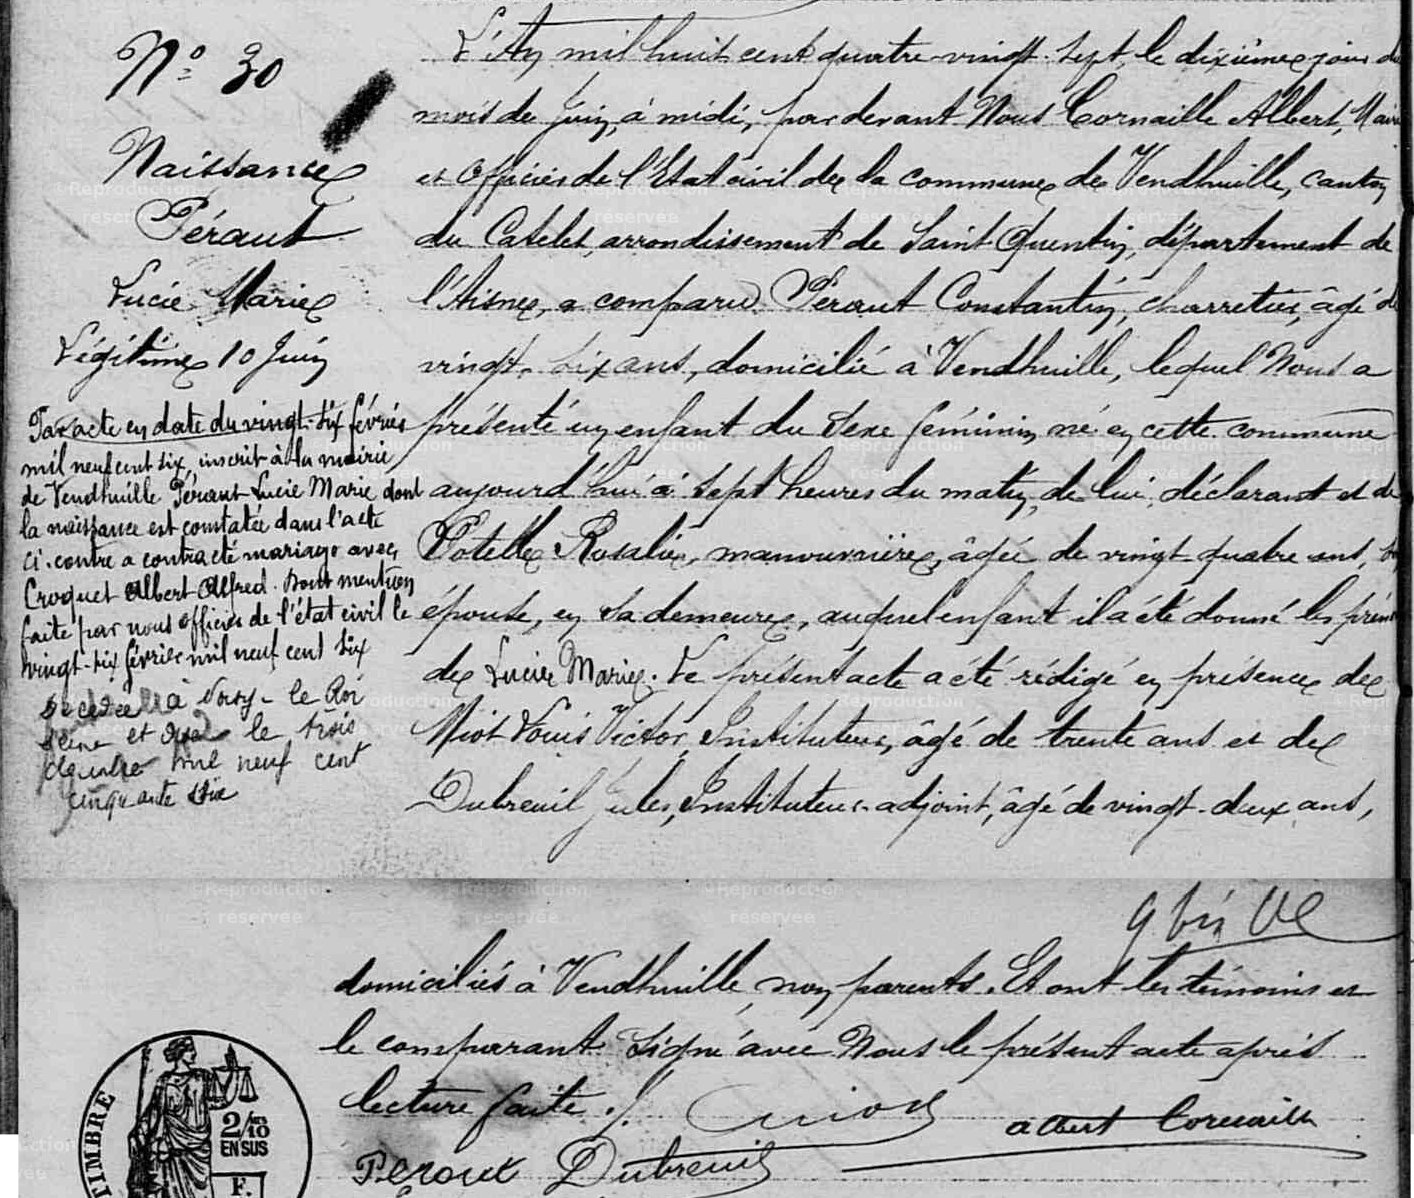 N° 30
Naissance
Péraut
Lucie Marie
Légitime 10 Juin
Par acte en date du vingt-six février
mil neuf cent six, inscrit à la mairie
de Vendhuille Péraut Lucie Marie dont
la naissance est constatée dans l'acte
ci-contre a contracté mariage avec
Croquet Albert Alfred. Dont mention
faite par nous officier de l'état civil le
vingt-six février mil neuf cent six
Décédée à Choisy-le Roi
Seine et le trois
mil neuf cent
cinquante six
L'An mil huit cent quatre-vingt-sept, le dixième jour du
mois de Juin, à midi, par devant Nous Cornaille Albert, Maire
et Officier de l'Etat civil de la commune de Vendhuille, canton
du Catelet, arrondissement de Saint Quentin, département de
l'Aisne, a comparu Péraut Constantin, charretier, âgé de
vingt-six ans, domicilié à Vendhuille, lequel Nous a
présenté un enfant du sexe féminin né en cette commune
aujourd'hui à sept heures du matin, de lui, déclarant et de
Potelle Rosalie, manouvrière, âgée de vingt-quatre ans, son
épouse, en sa demeure, auquel enfant il a été donné les prénoms
de Lucie Marie. Le présent acte a été rédigé en présence de
Miot Louis Victor, Instituteur, âgé de trente ans et de
Dubreuil Jules, Instituteur-adjoint, âgé de vingt-deux ans,
domiciliés à Vendhuille, non parents. Et ont les témoins et
le comparant signé avec Nous le présent acte après
lecture faite.
Miot
albert Cornaille
Peraut Dubreuil
TIMBRE
2/10
EN SUS
F.
©Reproduction
réservée